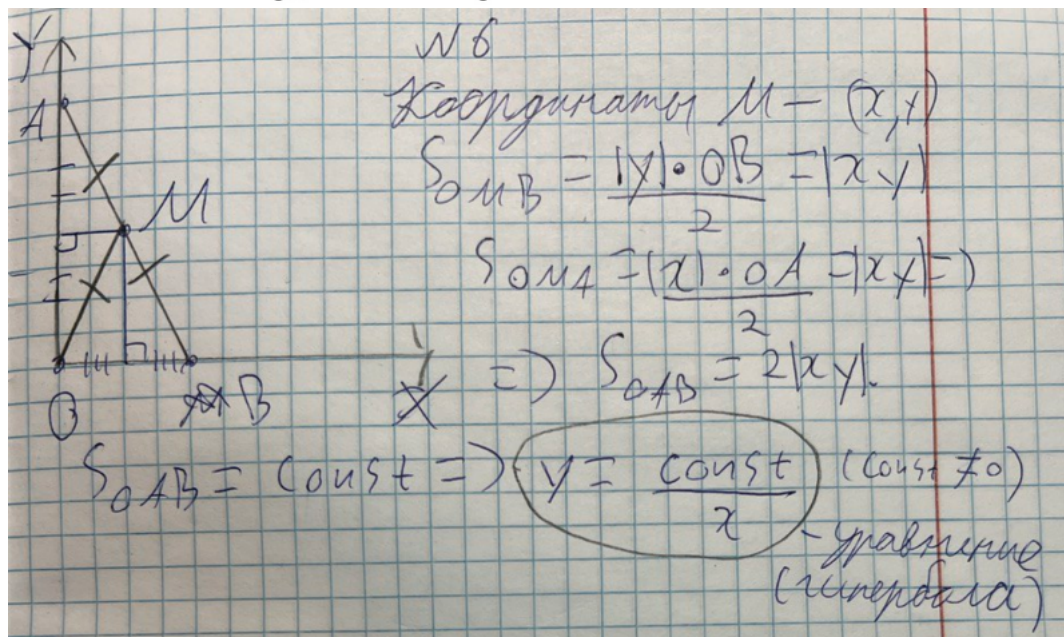 №6
Y
Координаты M — (x, y)
A
S_OMB = |y|·OB / 2 = |xy|
M
S_OMA = |x|·OA / 2 = |xy| =>
=> S_OAB = 2|xy|.
O B X
S_OAB = const => y = const / x (const ≠ 0)
- уравнение
(гипербола)